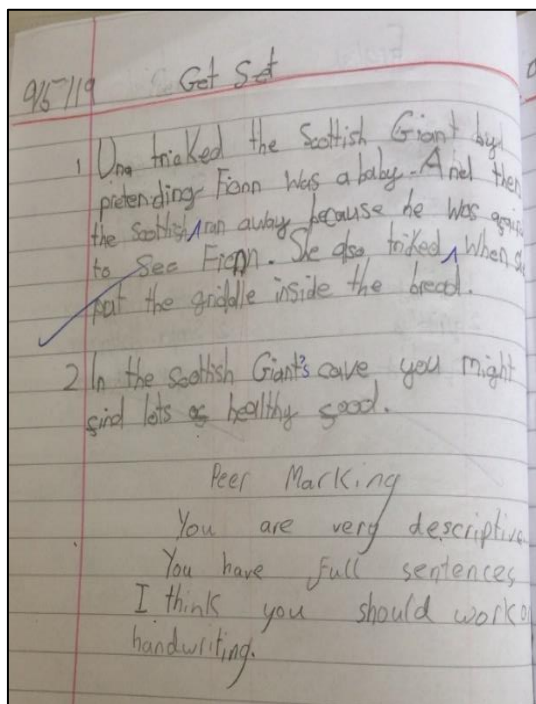 9/5/19 Get Set
1 Una triaked the Scottish Giant by
pretending Fionn was a baby. And then
the Scottish ^ ran away because he was
to see Fionn. She also triked ^ when she
put the griddle inside the bread.
2 In the scottish Giant's cave you might
find lots of healthy food.
Peer Marking
You are very descriptive.
You have full sentences
I think you should work on
handwriting.